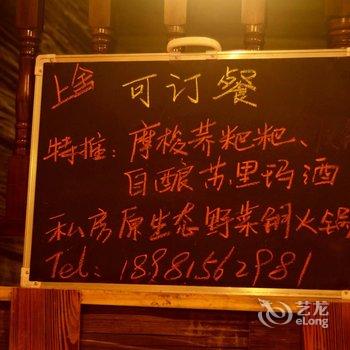 上舍 可订餐
特推：摩梭荞粑粑、
自酿苏里玛酒
私房原生态野菜铜火锅
Tel：18981562981
艺龙
eLong